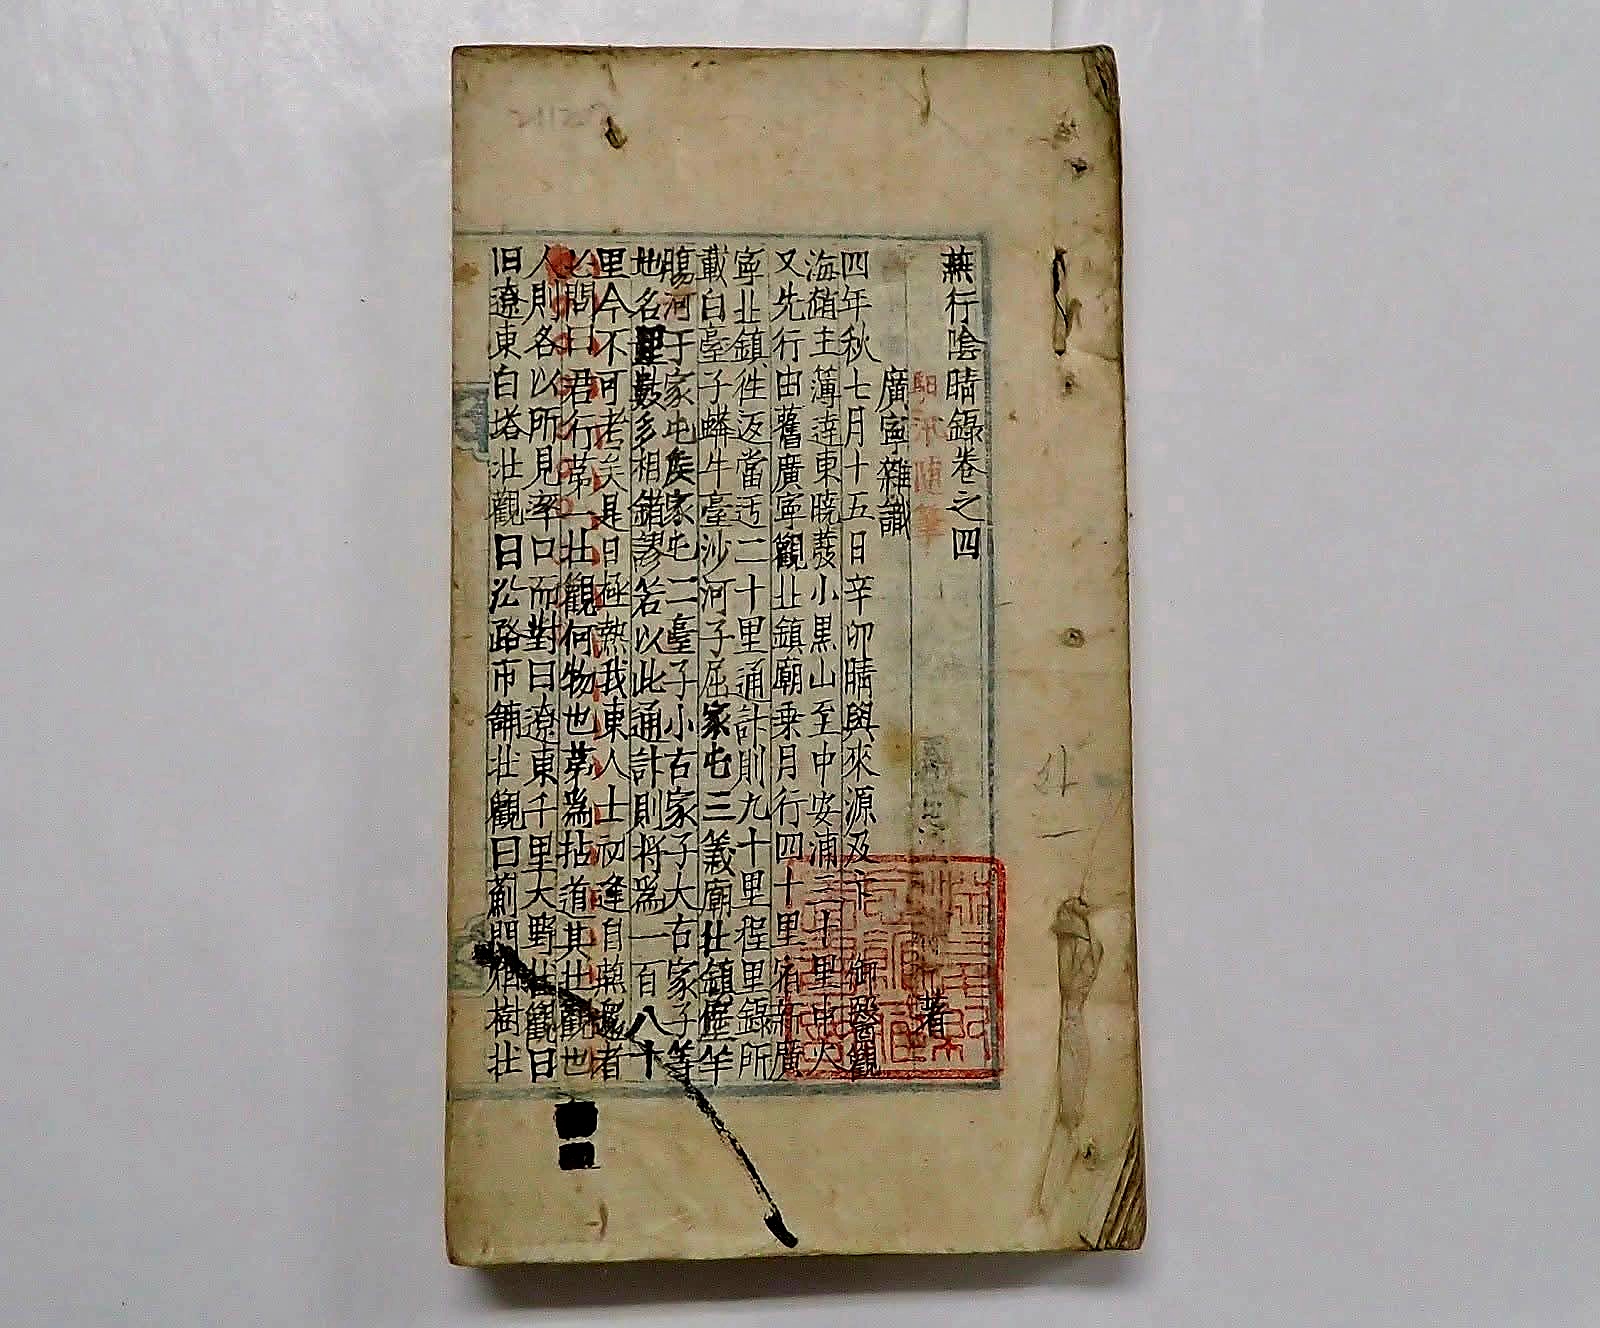 燕行陰晴錄卷之四
馹汛隨筆
著
廣寧雜識
四年秋七月十五日辛卯晴與來源及卞 御醫觀
海趙主簿達東曉發小黑山至中安浦三十里中火
又先行由舊廣寧觀北鎮廟乘月行四十里宿新廣
寧北鎮徃返當迃二十里通計則九十里程里錄所
載白臺子蟒牛臺沙河子屈家屯三義廟北鎮堡羊
膓河于家屯矦家屯二臺子小古家子大古家子等
地名里數多相錯謬若以此通計則將爲一百八十
里今不可考矣是日極熱我東人士初逢自燕還者
必問曰君行第一壯觀何物也第爲拈道其壯觀也
人則各以所見率口而對曰遼東千里大野壯觀曰
旧遼東白塔壯觀曰沿路市鋪壯觀曰薊門烟樹壯